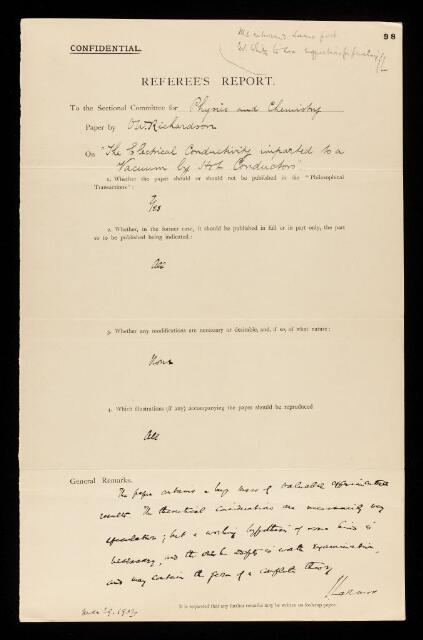 98
CONFIDENTIAL.
REFEREE'S REPORT.
To the Sectional Committee for Physics and Chemistry
Paper by O.W. Richardson
On "The Electrical Conductivity imparted to a
Vacuum by Hot Conductors"
1. Whether the paper should or should not be published in the "Philosophical
Transactions":
Yes
2. Whether, in the former case, it should be published in full or in part only, the part
so to be published being indicated:
All
3. Whether any modifications are necessary or desirable, and, if so, of what nature:
None
4. Which illustrations (if any) accompanying the paper should be reproduced
All
General Remarks.
The paper contains a large mass of valuable experimental
results. The theoretical considerations are necessarily very
speculative; but a working hypothesis of some kind is
necessary, and the one he adopts is worth examination,
and may contain the germ of a complete theory
It is requested that any further remarks may be written on foolscap paper.